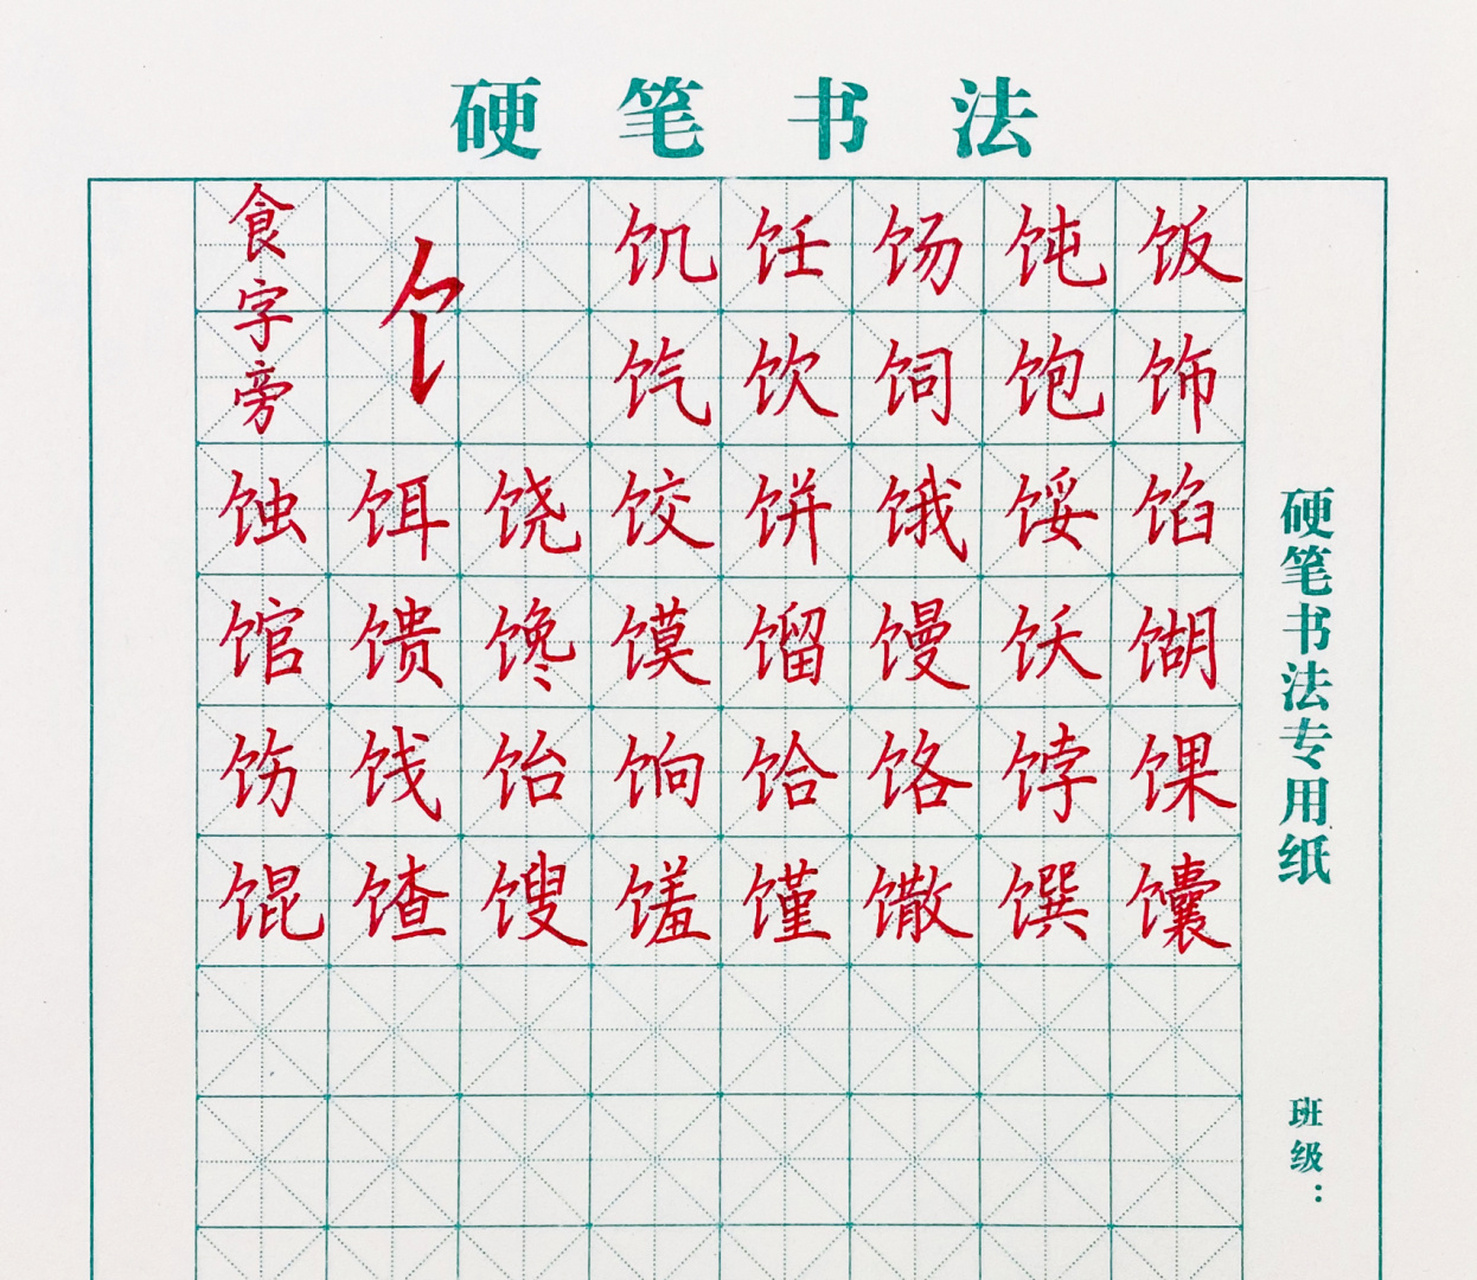 硬笔书法
食字旁 饣 饥饪饧饨饭
饩饮饲饱饰
蚀饵饶饺饼饿馁馅
馆馈馋馍馏馒饫𫗫
饬饯饴饷饸饹饽馃
馄馇馊馐馑馓馔馕
硬笔书法专用纸
班级：